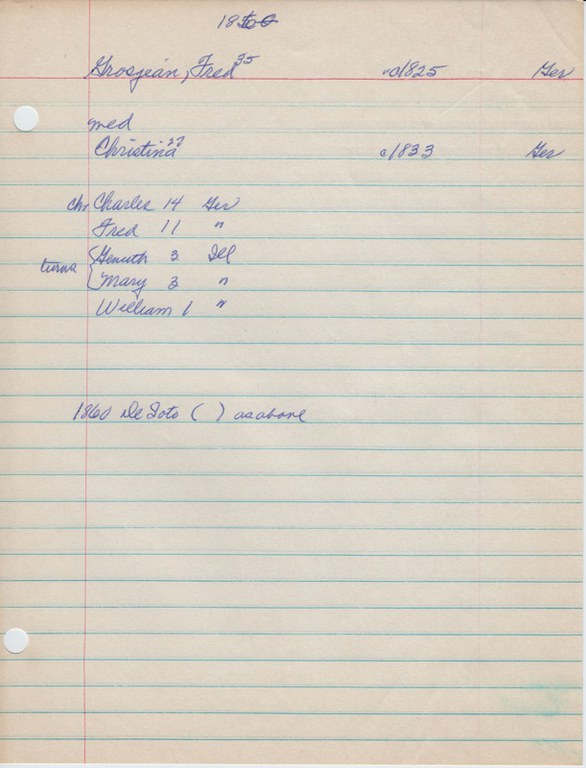 1860
Grosjean, Fred 35 c1825 Ger
med
Christina 27 c1833 Ger
chr Charles 14 Ger
Fred 11 "
twins 3 Ill
Mary 3 "
William 1 "
1860 De Soto ( ) as above